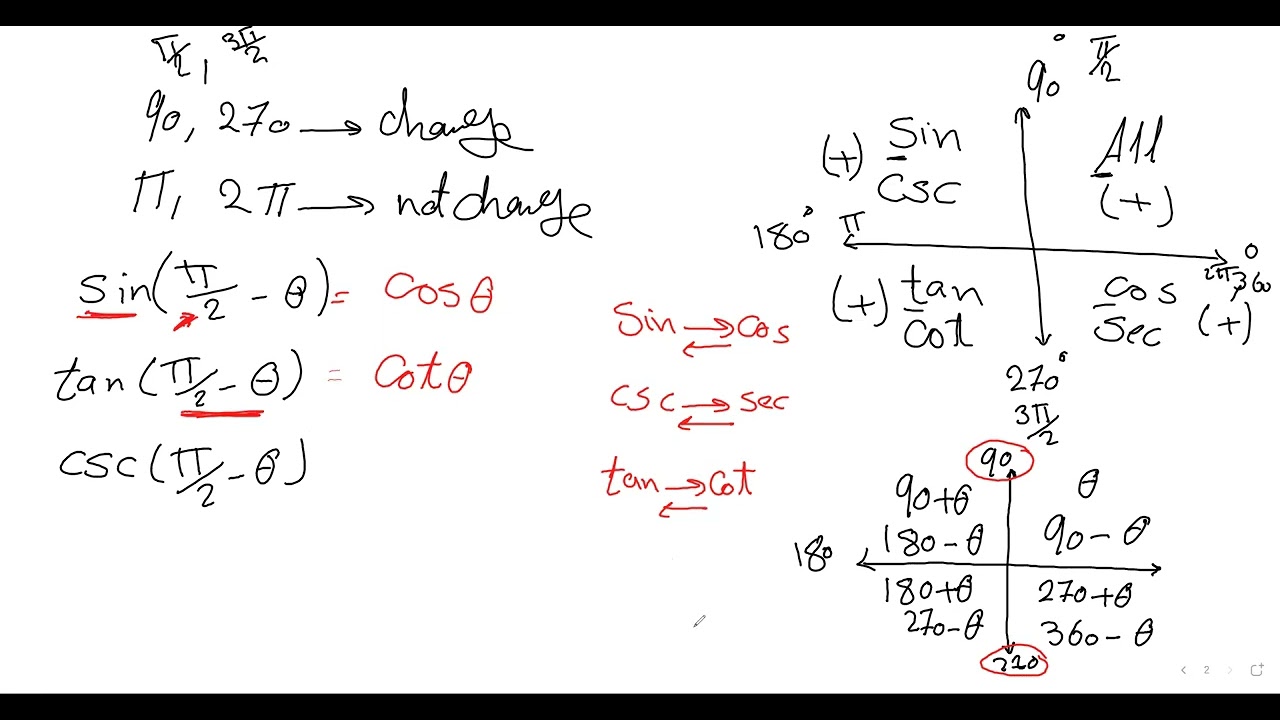 π/2, 3π/2
90, 270 → change
π, 2π → not change
sin(π/2 - θ) = cosθ
tan(π/2 - θ) = cotθ
csc(π/2 - θ)
Sin ⇄ cos
csc ⇄ sec
tan ⇄ cot
90° π/2
(+) Sin
csc
All
(+)
180° π
0
2π, 360
(+) tan
cot
cos
sec (+)
270°
3π/2
90
90+θ
180-θ
θ
90-θ
180
180+θ
270-θ
270+θ
360-θ
2